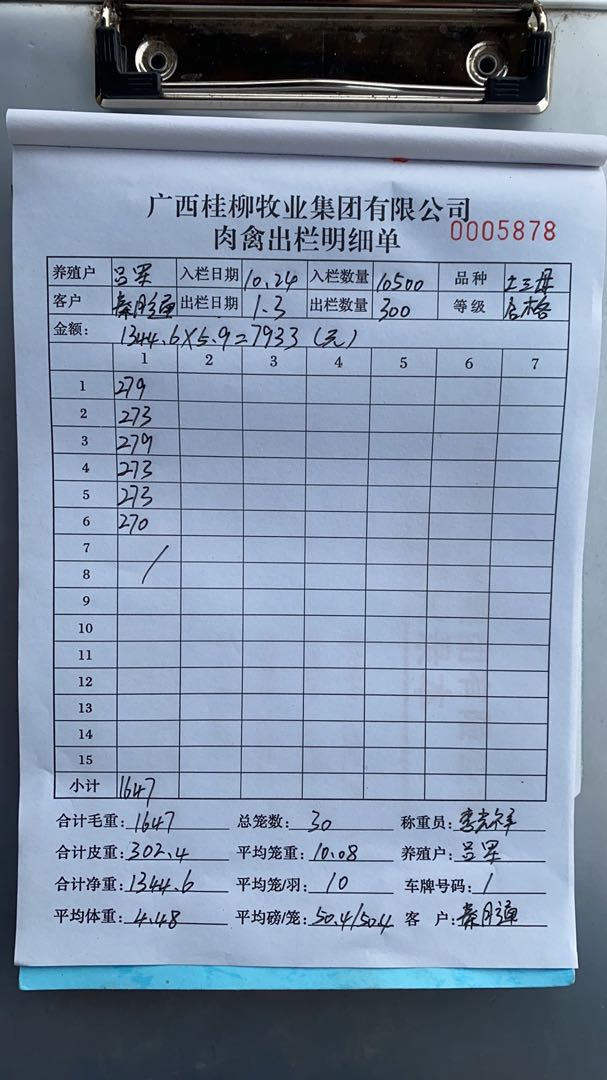 广西桂柳牧业集团有限公司
肉禽出栏明细单 0005878
养殖户 吕军 入栏日期 10.24 入栏数量 10500 品种 土三母
客户 秦彤通 出栏日期 1.3 出栏数量 300 等级 合格
金额: 1344.6×5.9=7933 (元)
1 2 3 4 5 6 7
1 279
2 273
3 279
4 273
5 273
6 270
7
8 /
9
10
11
12
13
14
15
小计 1647
合计毛重: 1647 总笼数: 30 称重员:
合计皮重: 302.4 平均笼重: 10.08 养殖户: 吕军
合计净重: 1344.6 平均笼/羽: 10 车牌号码: /
平均体重: 4.48 平均磅/笼: 50.4/50.4 客 户: